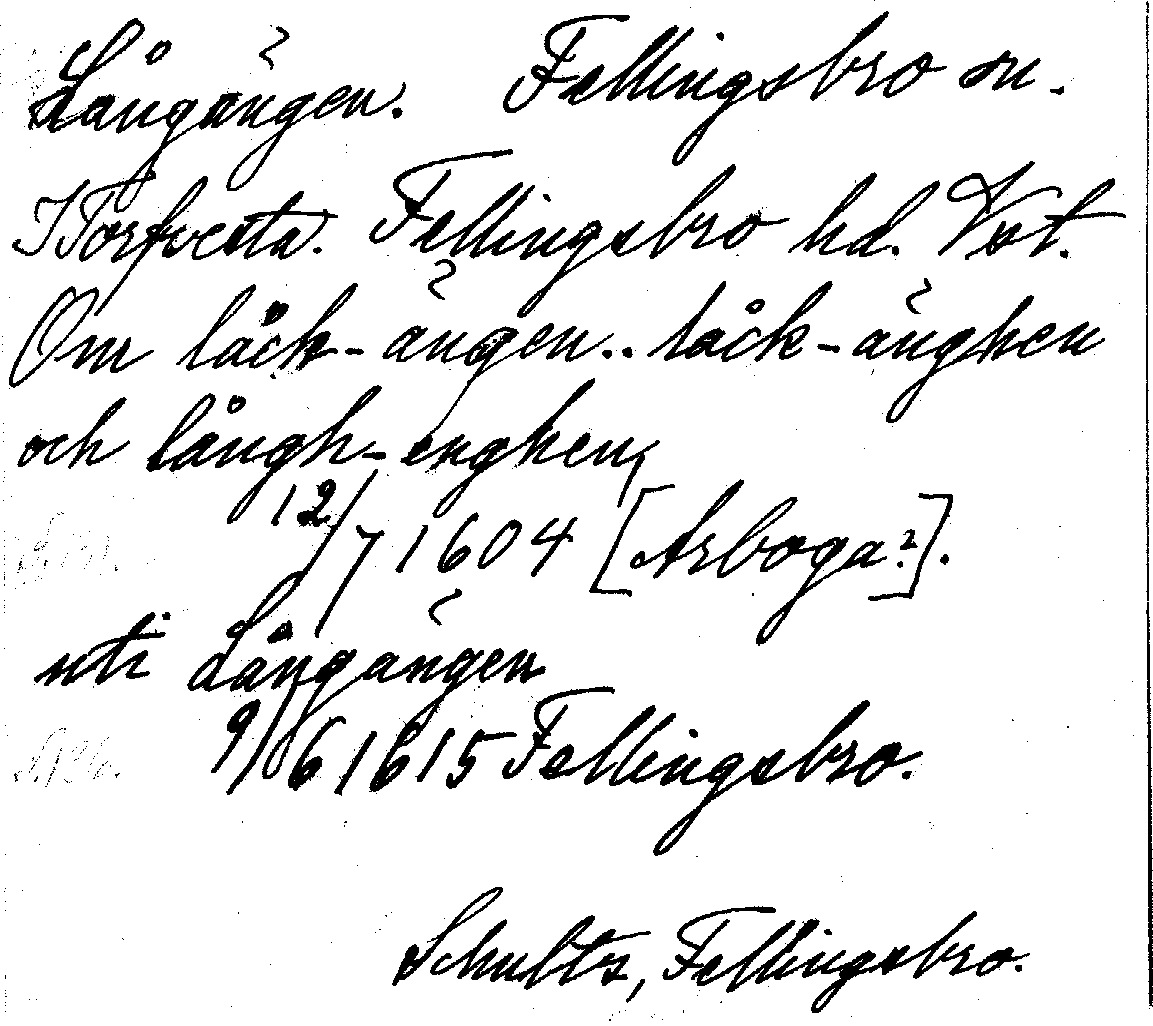 Långängen. Fellingsbro sn.
I Torfvesta. Fellingsbro hd. Vstm.
Om låck-ängen.. låck-änghen
och långh-enghen,
12/7 1604 [Arboga?].
uti Långängen
9/6 1615 Fellingsbro.
Schultz, Fellingsbro.